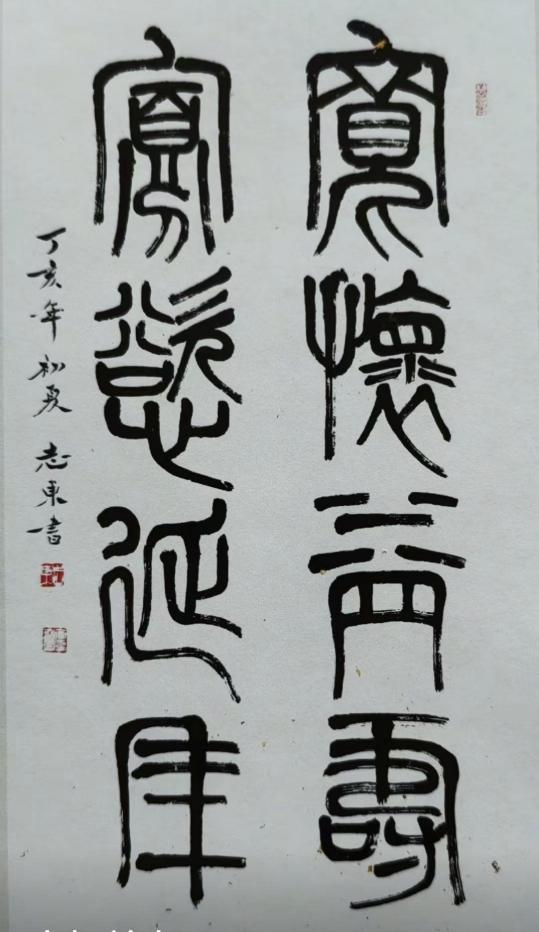 寬懷益壽
寡慾延年
丁亥年初夏 志東書